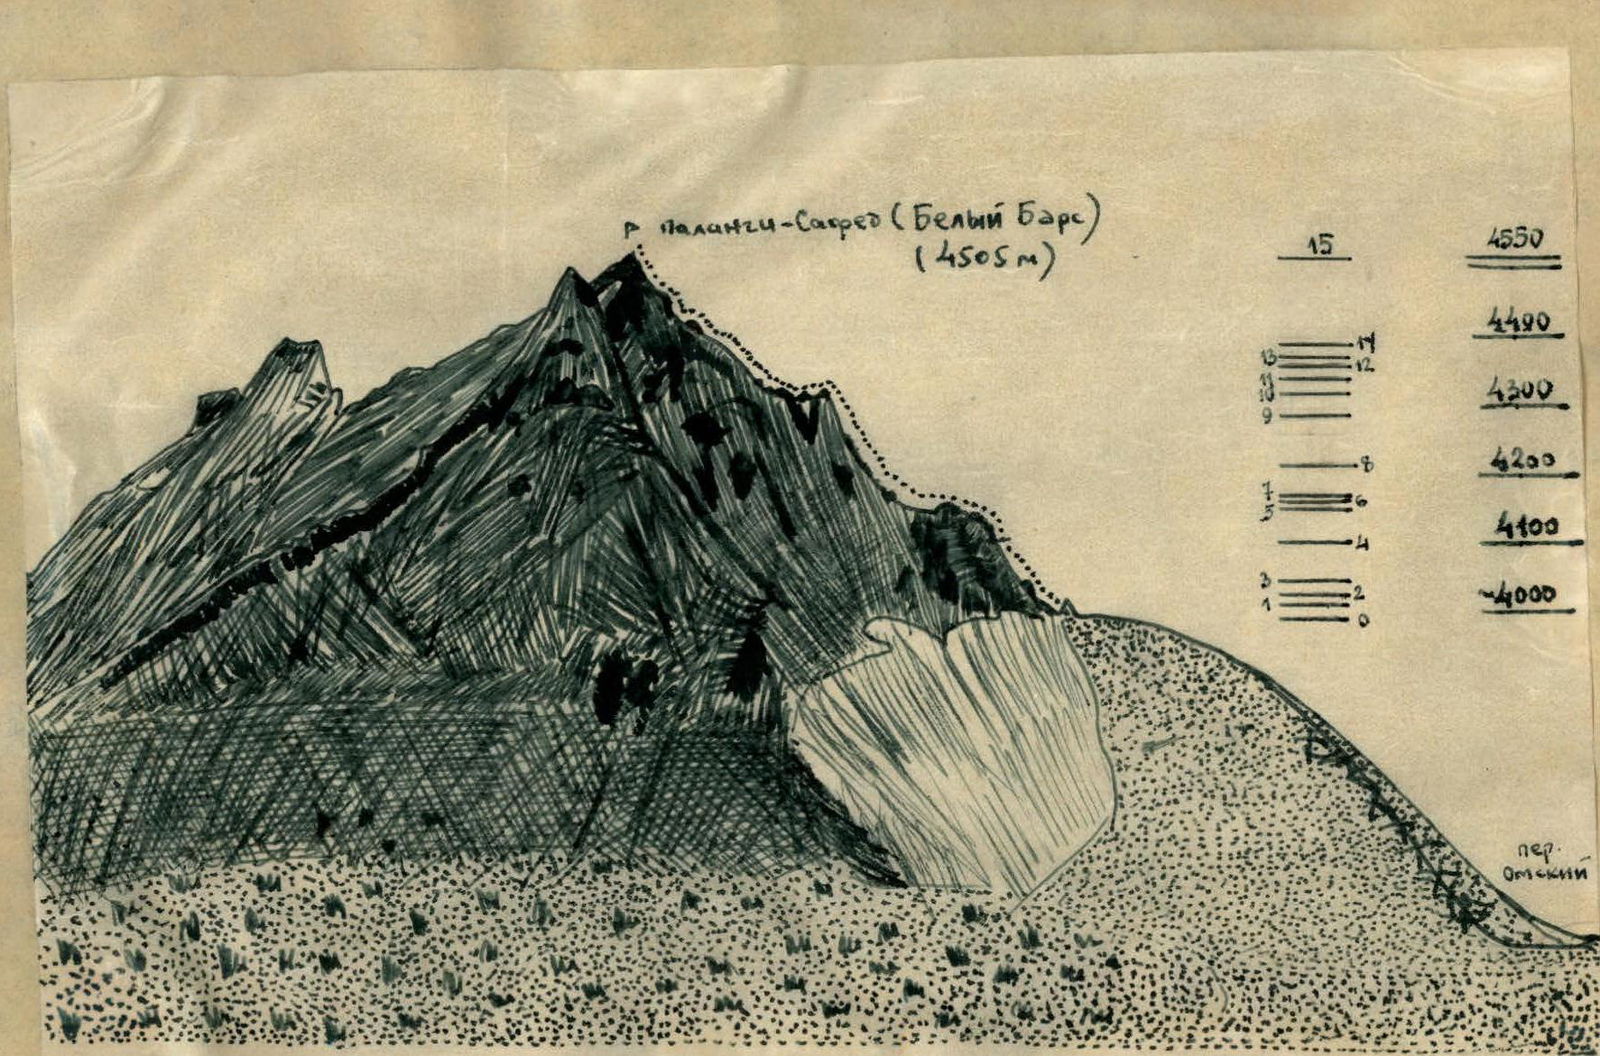 Паланги-Сафед (Белый Барс)
(4505м)
15
4550
4400
14
13
12
4300
11
10
9
8
4200
7
6
5
4100
4
3
2
~4000
1
0
пер.
Омский